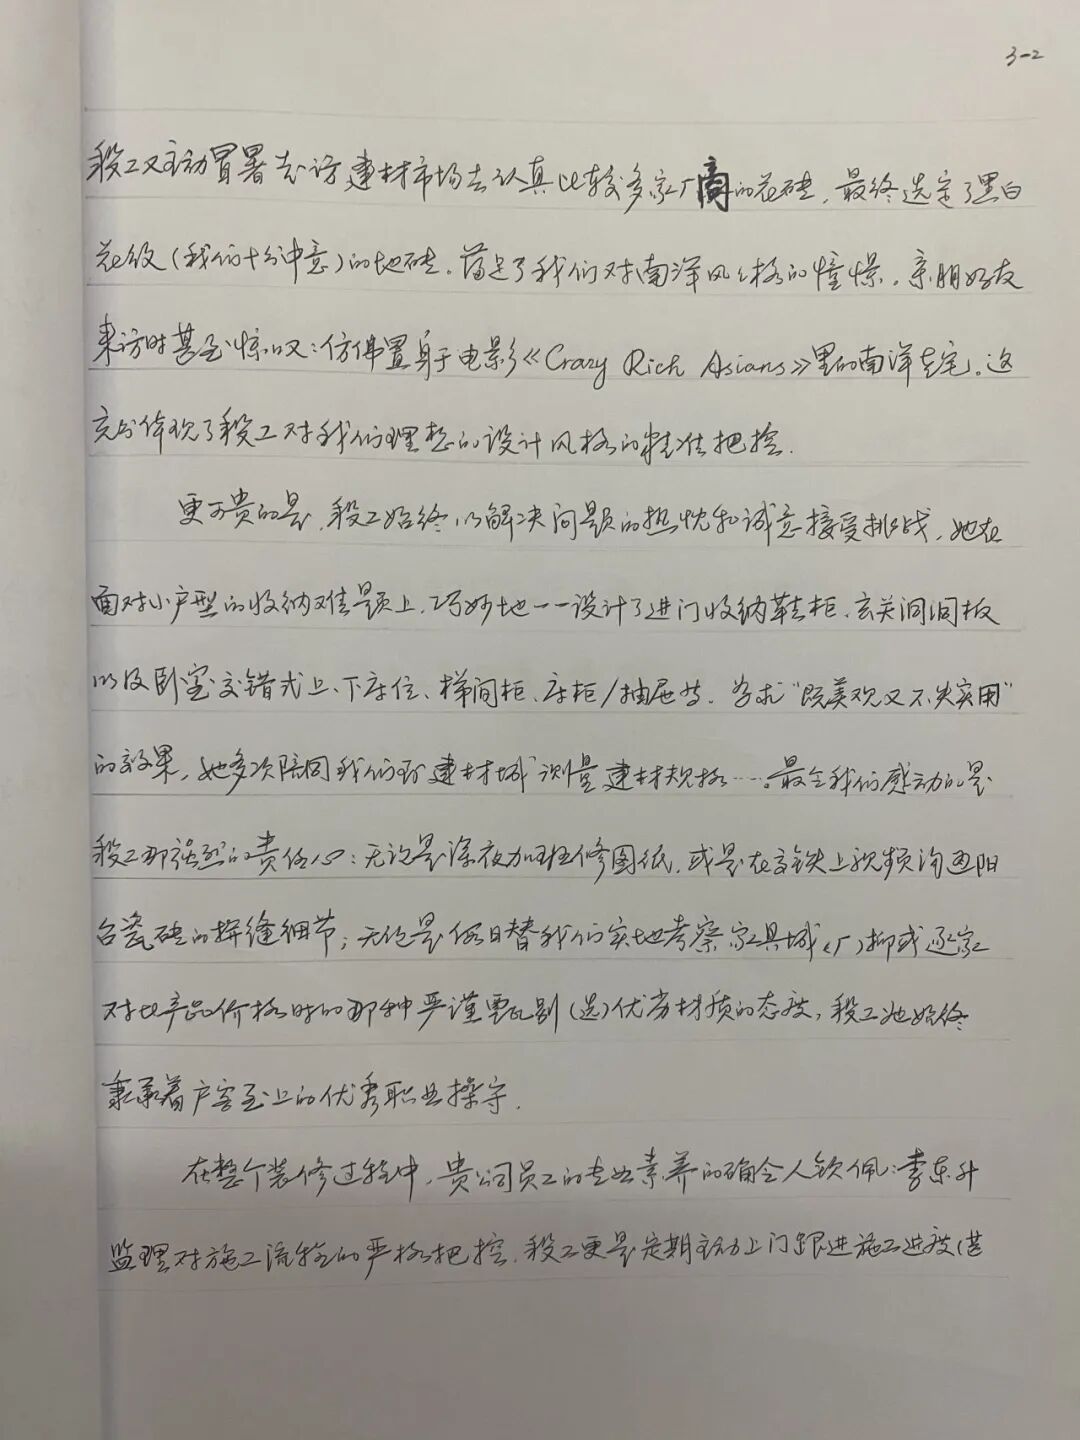 3-2
段工又主动冒署去访建材市场去认真比较多家厂商的花砖，最终选定了黑白
花纹（我们十分中意）的地砖。满足了我们对南洋风格的憧憬。亲朋好友
来访时甚至惊叹：仿佛置身于电影《Crazy Rich Asians》里的南洋老宅。这
充分体现了段工对我们理想的设计风格的精准把控.
更可贵的是，段工始终以解决问题的热忱和诚意接受挑战，她在
面对小户型的收纳难题上，巧妙地一一设计了进门收纳鞋柜、玄关洞洞板
以及卧室交错式上、下床位、梯间柜、床柜/抽屉等。务求“既美观又不失实用”
的效果，她多次陪同我们到建材城测量建材规格……。最令我们感动的是
段工那强烈的责任心：无论是深夜加班修图纸，或是在高铁上视频沟通阳
台瓷砖的拼缝细节；无论是假日替我们实地考察家具城（厂）抑或逐家
对比产品价格时的那种严谨甄别（选）优劣材质的态度，段工她始终
秉承着户客至上的优秀职业操守.
在整个装修过程中，贵公司员工的专业素养的确令人钦佩：李东升
监理对施工流程的严格把控，段工更是定期主动上门跟进施工进度（甚